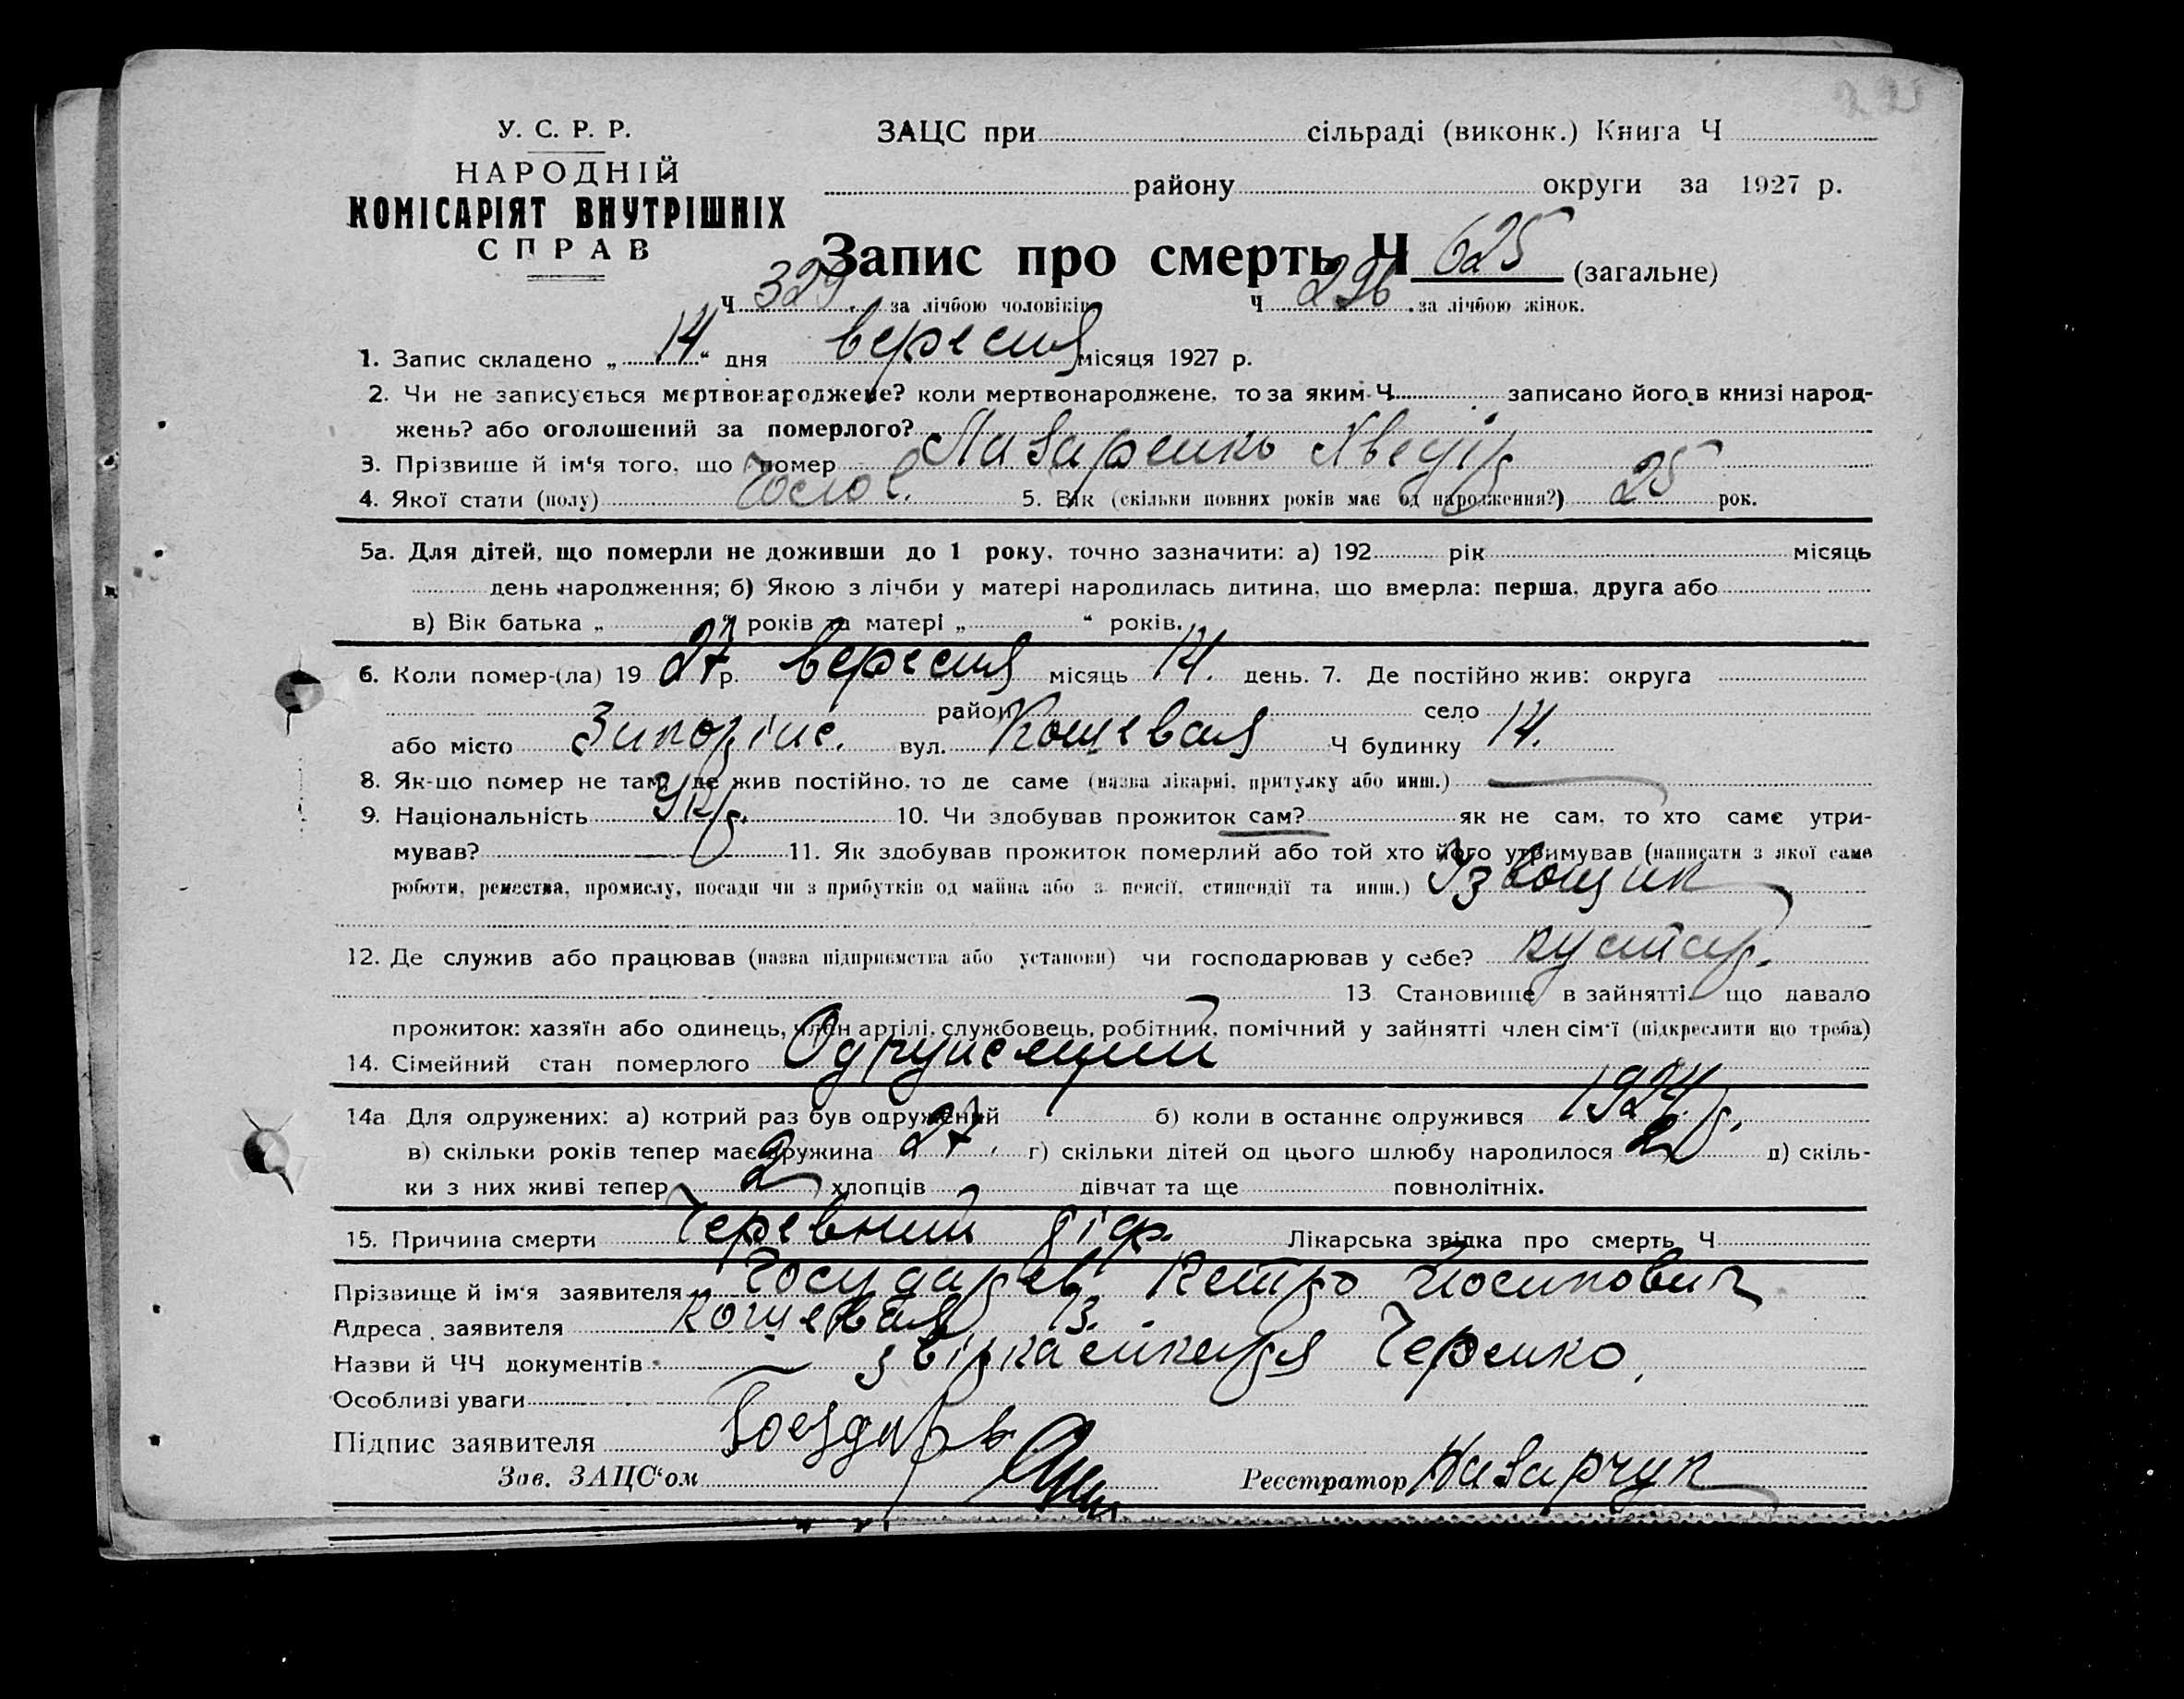 У. С. Р. Р.
НАРОДНІЙ
КОМІСАРІЯТ ВНУТРІШНІХ
СПРАВ
ЗАЦС при сільраді (виконк.) Книга Ч
району округи за 1927 р.
Запис про смерть Ч 625 (загальне)
Ч 329 за лічбою чоловіків Ч 296 за лічбою жінок.
1. Запис складено „ 14 “ дня вересня місяця 1927 р.
2. Чи не записується мертвонароджене? коли мертвонароджене, то за яким Ч записано його в книзі народ-
жень? або оголошений за померлого?
3. Прізвище й ім'я того, що помер Лазаренко
4. Якої стати (полу) Чолов. 5. Вік (скільки повних років має од народження?) 25 рок.
5а. Для дітей, що померли не доживши до 1 року, точно зазначити: а) 192 рік місяць
день народження; б) Якою з лічби у матері народилась дитина, що вмерла: перша, друга або
в) Вік батька „ “ років та матері „ “ років.
6. Коли помер-(ла) 19 27 р. вересня місяць 14. день. 7. Де постійно жив: округа
район село
або місто вул. Кощевая Ч будинку 14.
8. Як-що помер не там, де жив постійно, то де саме (назва лікарні, притулку або инш.)
9. Національність Укр. 10. Чи здобував прожиток сам? як не сам, то хто саме утри-
мував? 11. Як здобував прожиток померлий або той хто його утримував (написати з якої саме
роботи, ремества, промислу, посади чи з прибутків од майна або з пенсії, стипендії та инш.) Ізвощик
12. Де служив або працював (назва підприємства або установи) чи господарював у себе? кустар.
13 Становище в зайнятті, що давало
прожиток: хазяїн або одинець, член артілі, службовець, робітник, помічний у зайнятті член сім'ї (підкреслити що треба)
14. Сімейний стан померлого Одружений
14а Для одружених: а) котрий раз був одружений б) коли в останнє одружився 1924 р.
в) скільки років тепер має дружина 27. г) скільки дітей од цього шлюбу народилося 2 д) скіль-
ки з них живі тепер 2 хлопців дівчат та ще повнолітніх.
15. Причина смерти Черевний тіф. Лікарська звідка про смерть Ч
Прізвище й ім'я заявителя Петро Йосипович
Адреса заявителя Кощевая 13.
Назви й ЧЧ документів
Особливі уваги
Підпис заявителя
Зав. ЗАЦС'ом Реєстратор Назарчук